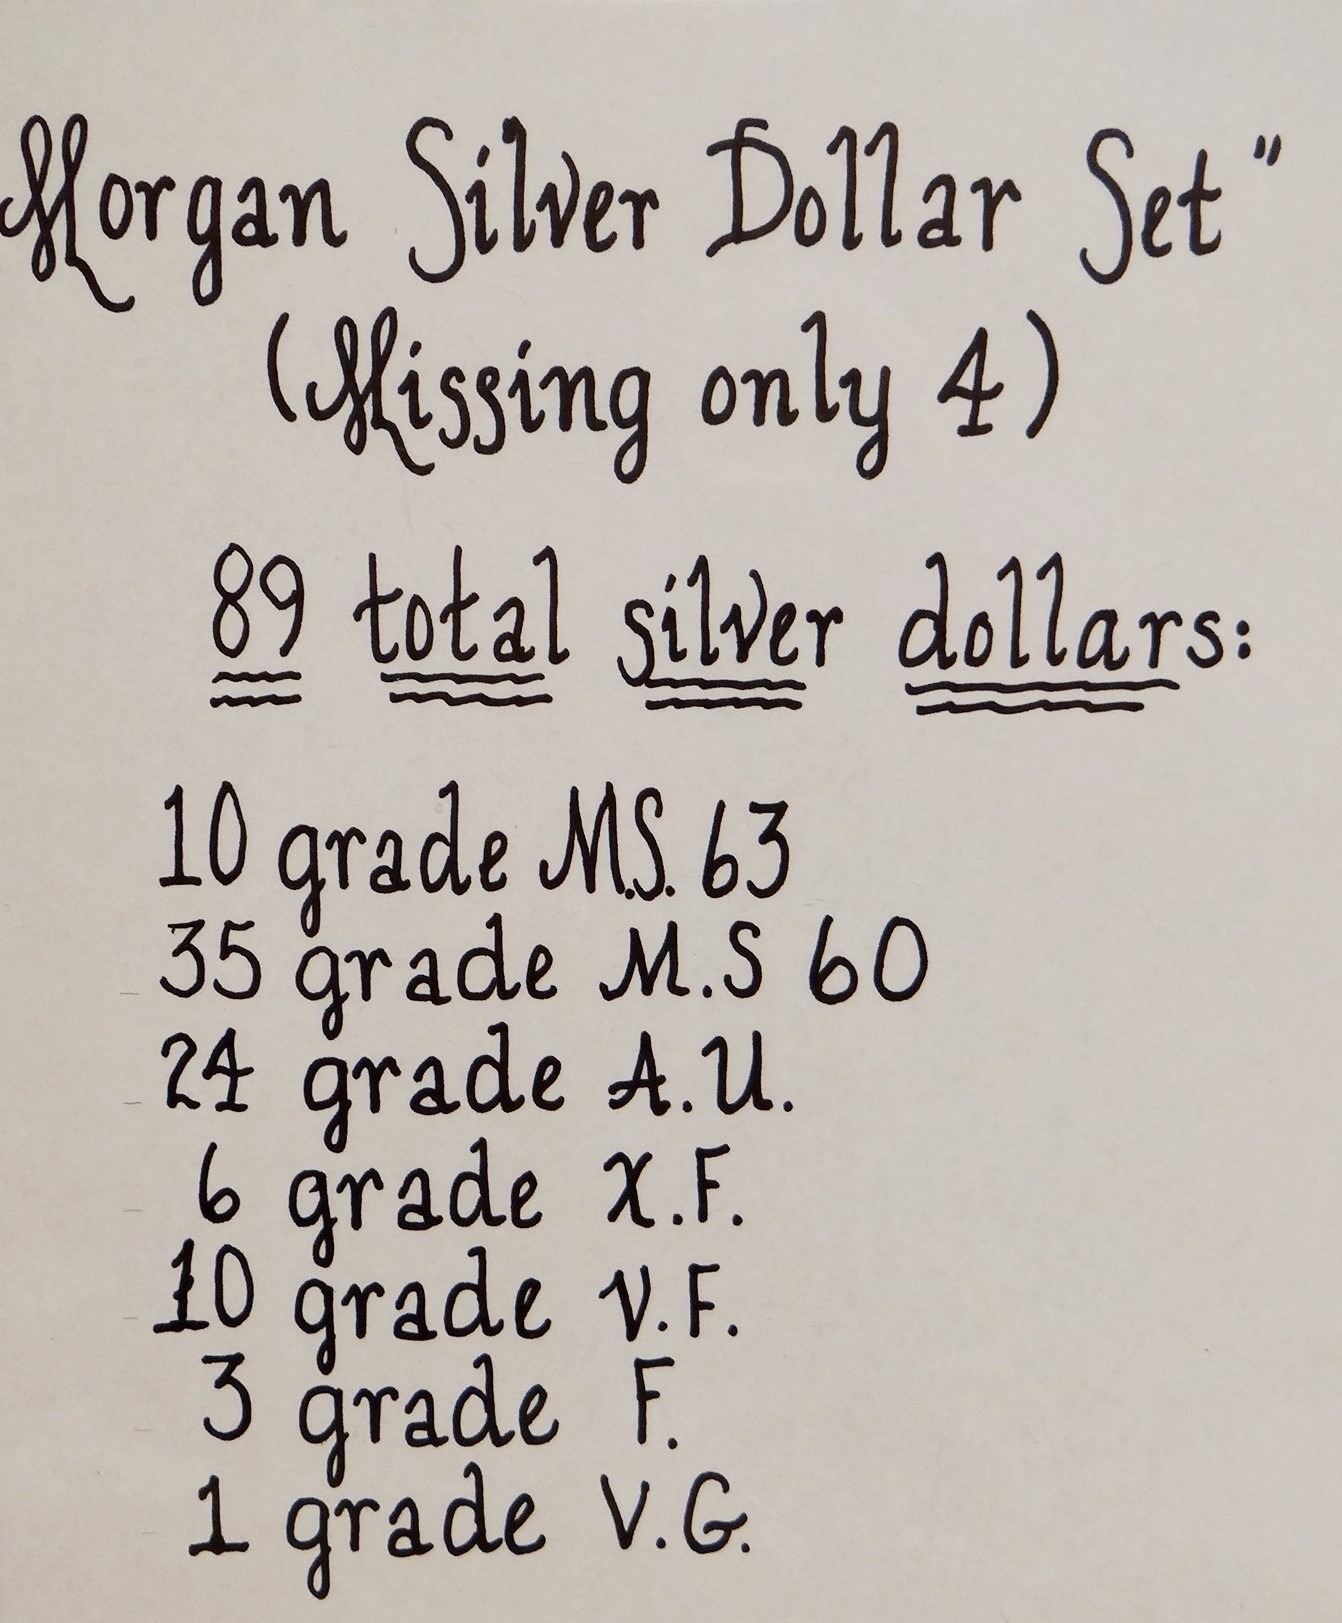 Morgan Silver Dollar Set"
(Missing only 4)
89 total silver dollars:
10 grade M.S. 63
35 grade M.S 60
24 grade A.U.
6 grade X.F.
10 grade V.F.
3 grade F.
1 grade V.G.